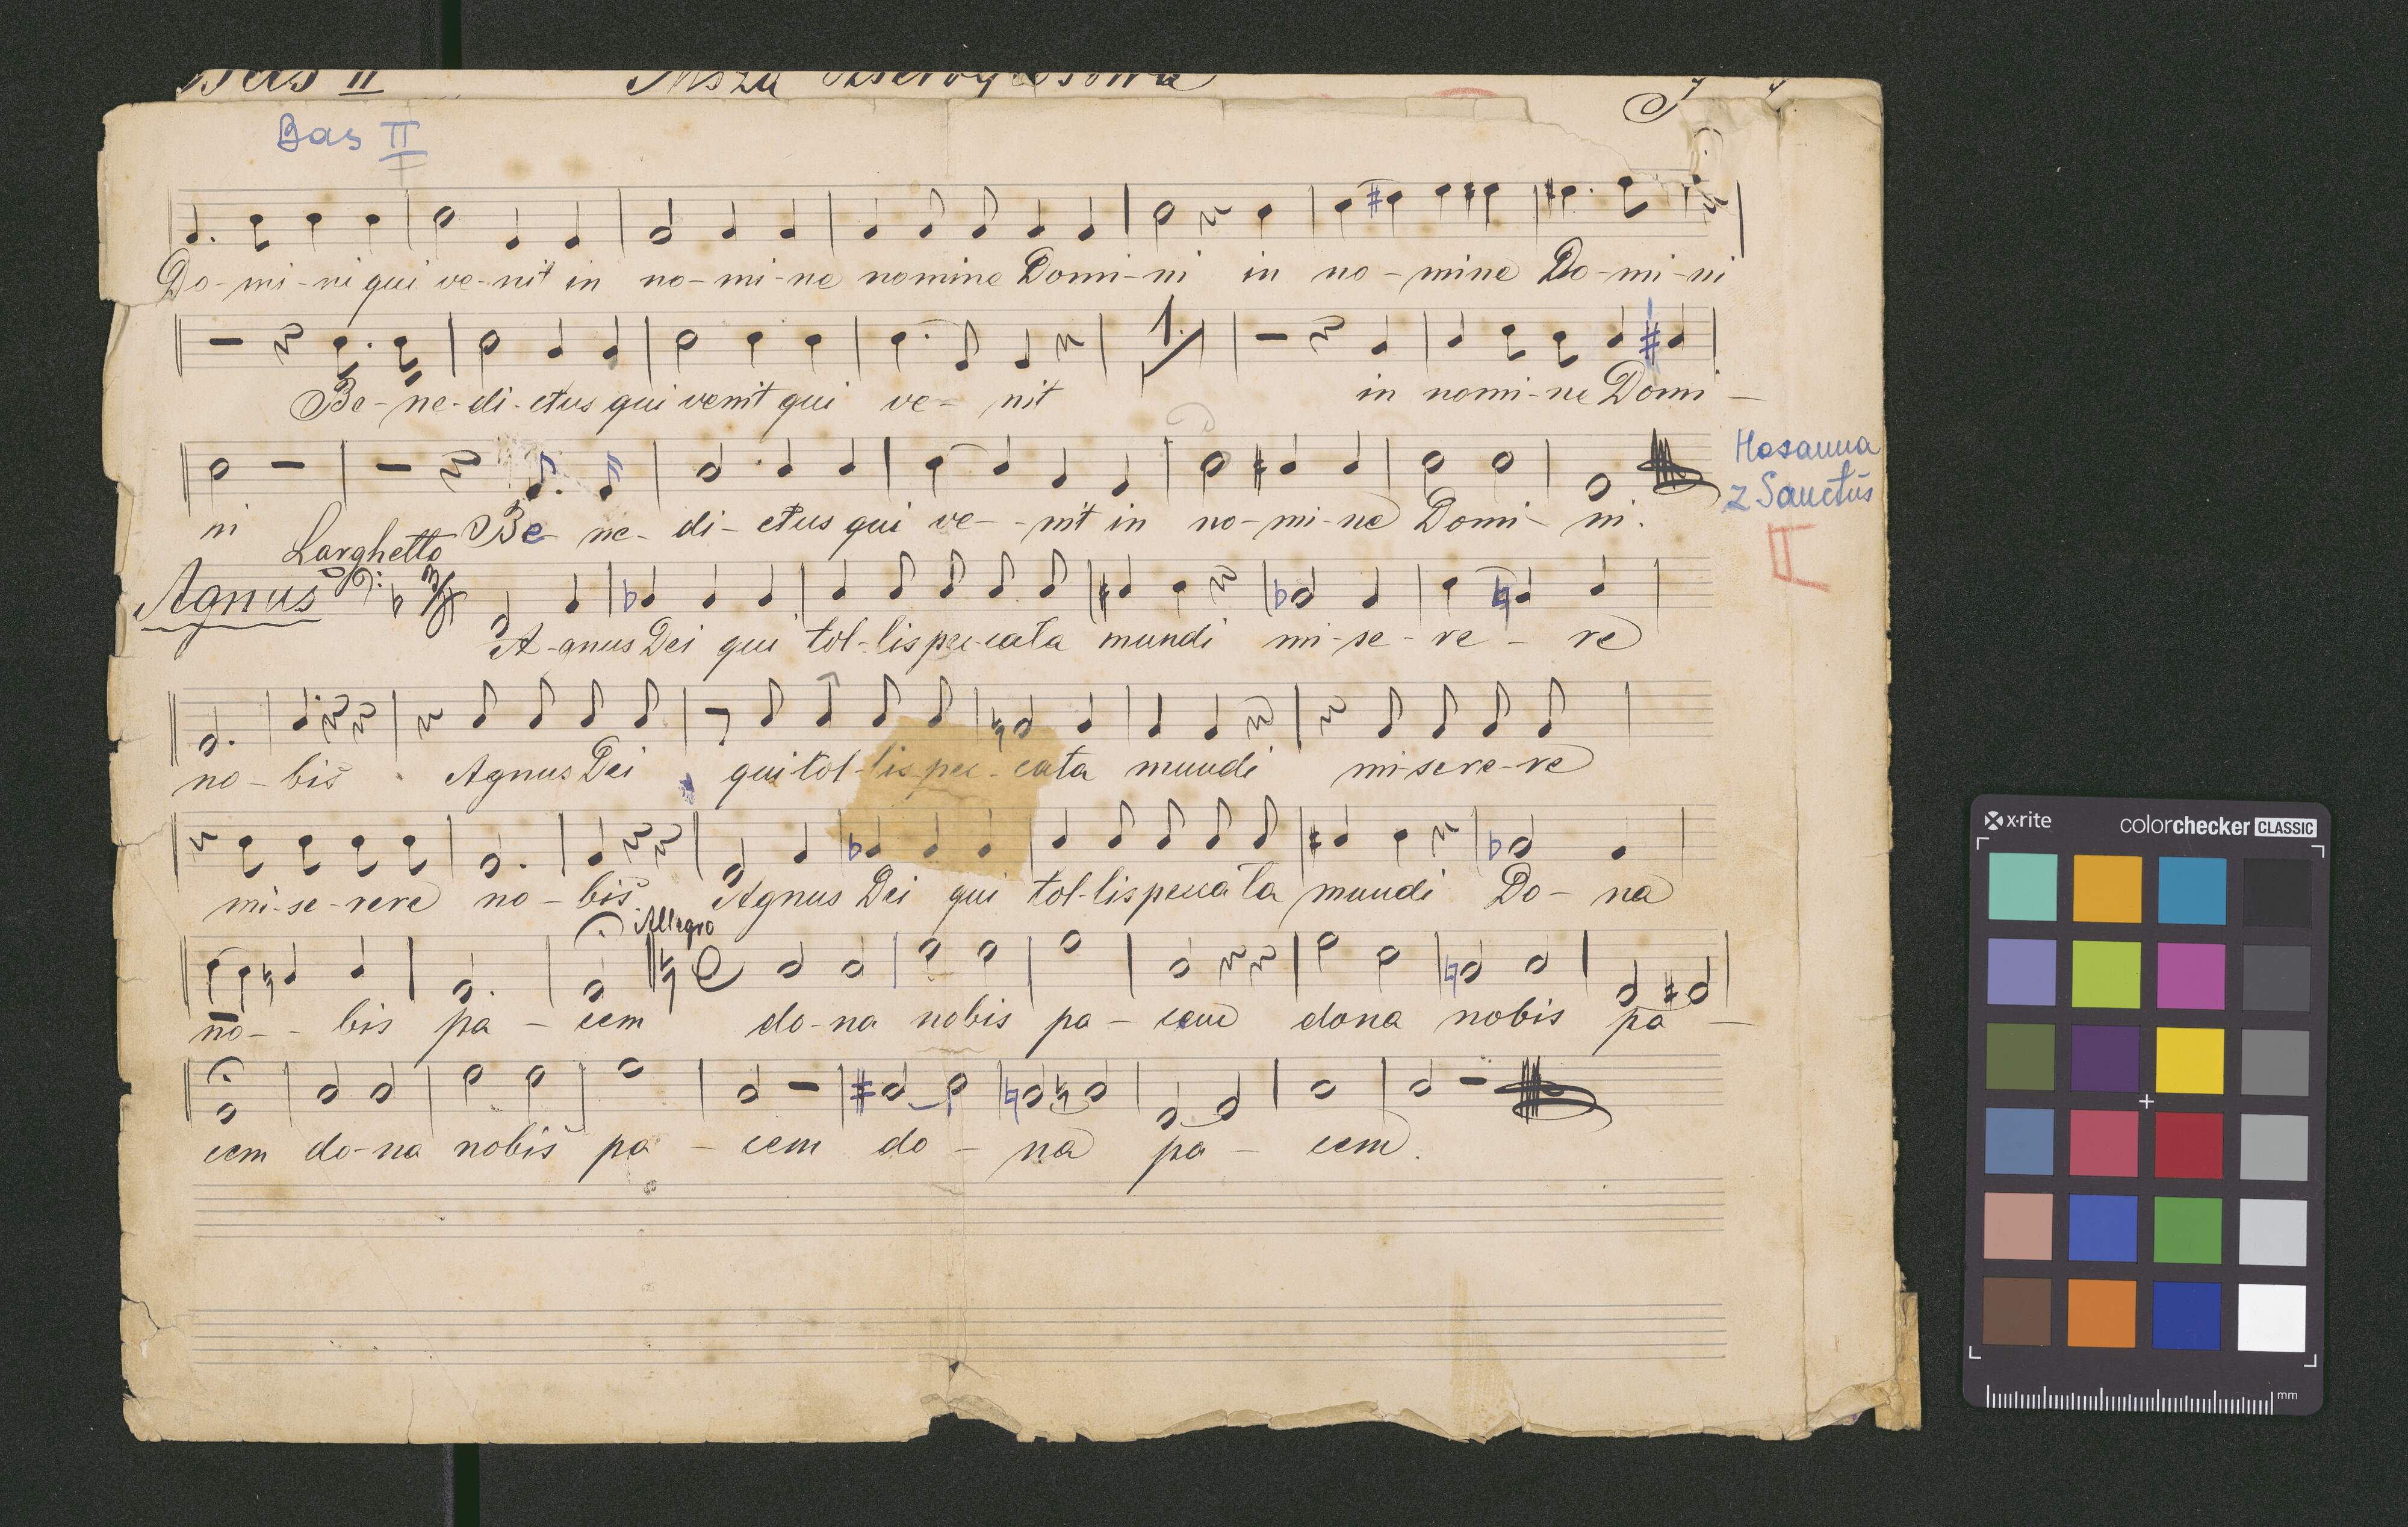 Bas II Msza
Bas II
Do-mi-ni qui ve-nit in no-mi-ne nomine Domi-ni in no-mine Do-mi-ni
1.
Be-ne-di-ctus qui venit qui ve-nit in nomi-ne Domi-
Hosanna
z Sanctus
ni Be-ne-di-ctus qui ve-nit in no-mi-ne Domi-ni.
Larghetto
Agnus
A-gnus Dei qui tol-lis pec-cata mundi mi-se-re-re
no-bis Agnus Dei qui tol-lis pec-cata mundi mi-sere-re
mi-se-rere no-bis. Agnus Dei qui tol-lis pecca ta mundi Do-na
Allegro
no-bis pa-cem do-na nobis pa-cem dona nobis pa-
cem do-na nobis pa-cem do-na pa-cem.
x-rite colorchecker CLASSIC
mm